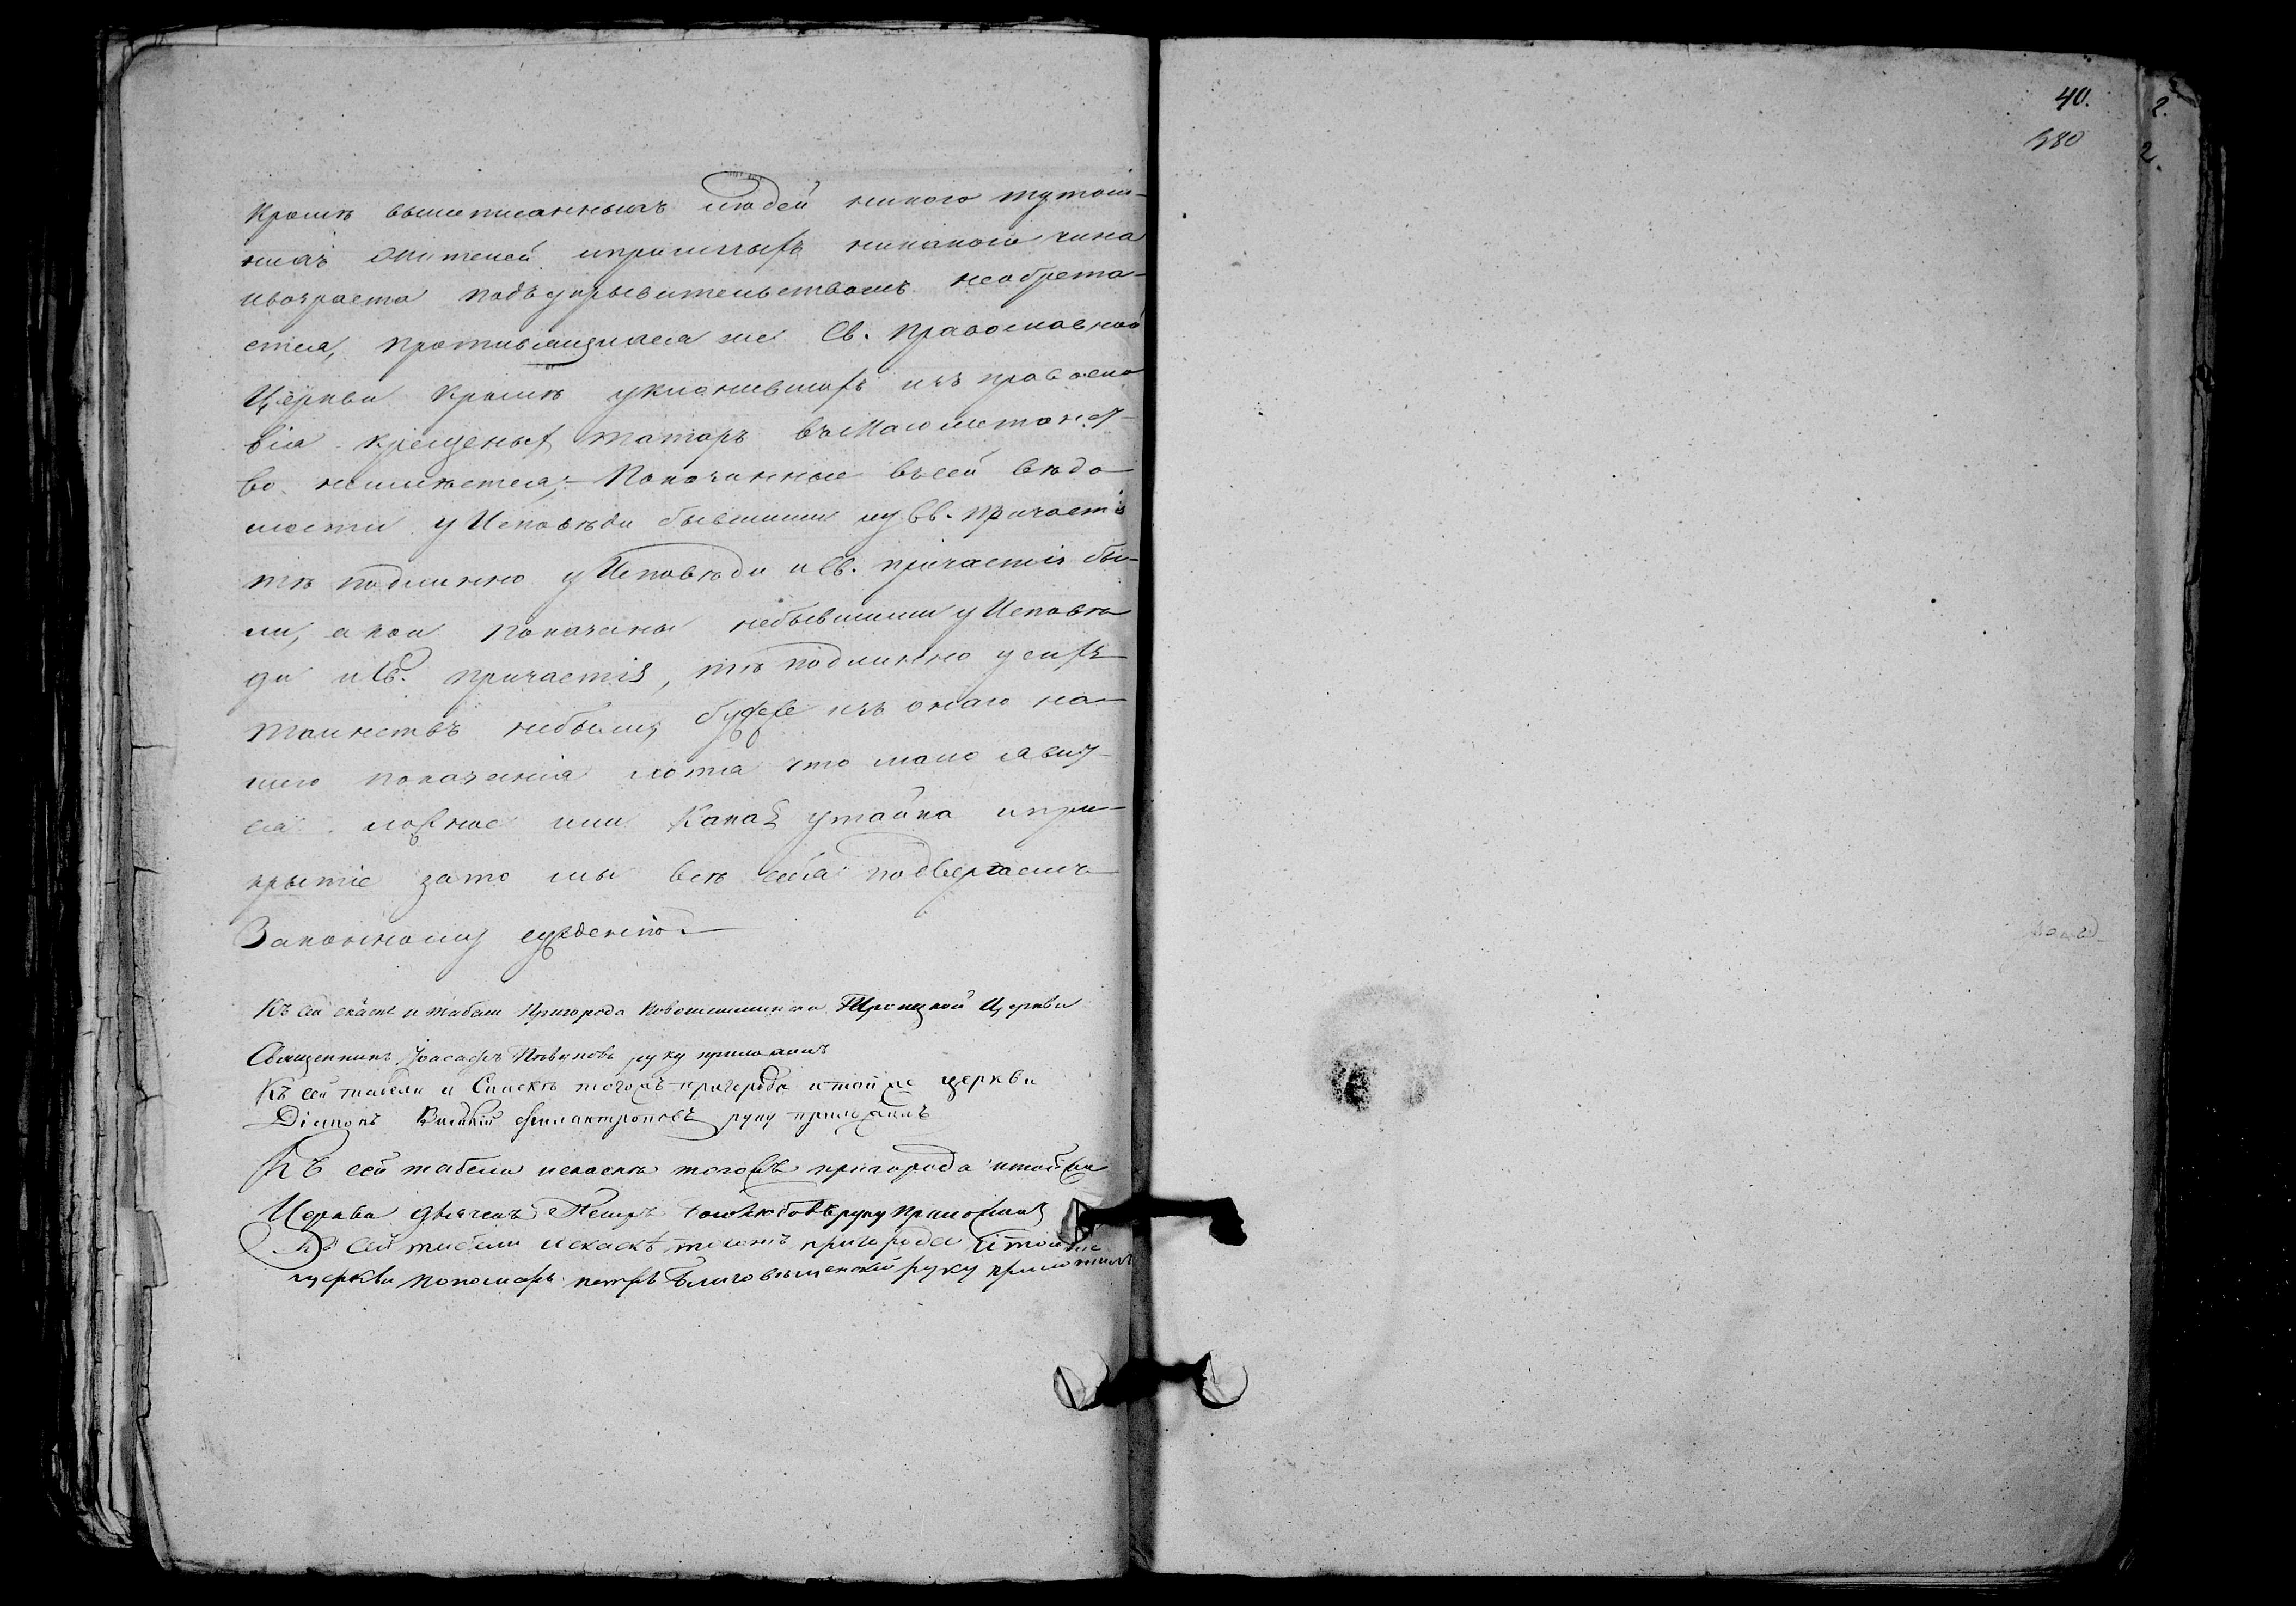 40.
380
2.
2.
Кромѣ вышеписанныхъ людей никого тутош-
нихъ жителей ипришлыхъ никакого чина
ивозраста подъукрывательствомъ необрета-
ется, противящихся же Св. православной
Церкви кромѣ уклонившихъ изъ правосла
вія крещеныхъ татаръ въ Магометанст-
во неимѣется; Показанные въсей вѣдо
мости у Исповѣди бывшими иу Св. причастія
тѣ подлинно у Исповѣди и Св. причастія бы-
ли, акои показаны небывшими у Исповѣ
ди и Св. причастія, тѣ подлинно усихъ
таинствъ небыли, буде изъ онаго на
шего показанія хотя что мало явит-
ся ложное или какая утайка ипри-
крытіе зато мы всѣ себя подвергаемъ
Законному сужденію.
Къ сей скаске и табели Пригорода Новошешминска Троицкой Церкви
Священникъ Іоасафъ руку приложилъ
Къ сей табели и Сказкѣ тогожъ пригорода итойже церкви
Діаконъ Филантроповъ руку приложилъ
Къ сей табели искаскѣ тогожъ пригорода итойже
Церкви дьячекъ Петръ руку приложилъ
Къ сей табели искаскѣ тогожъ пригорода итойже
церкви пономарь петръ Благовѣщенской руку приложилъ